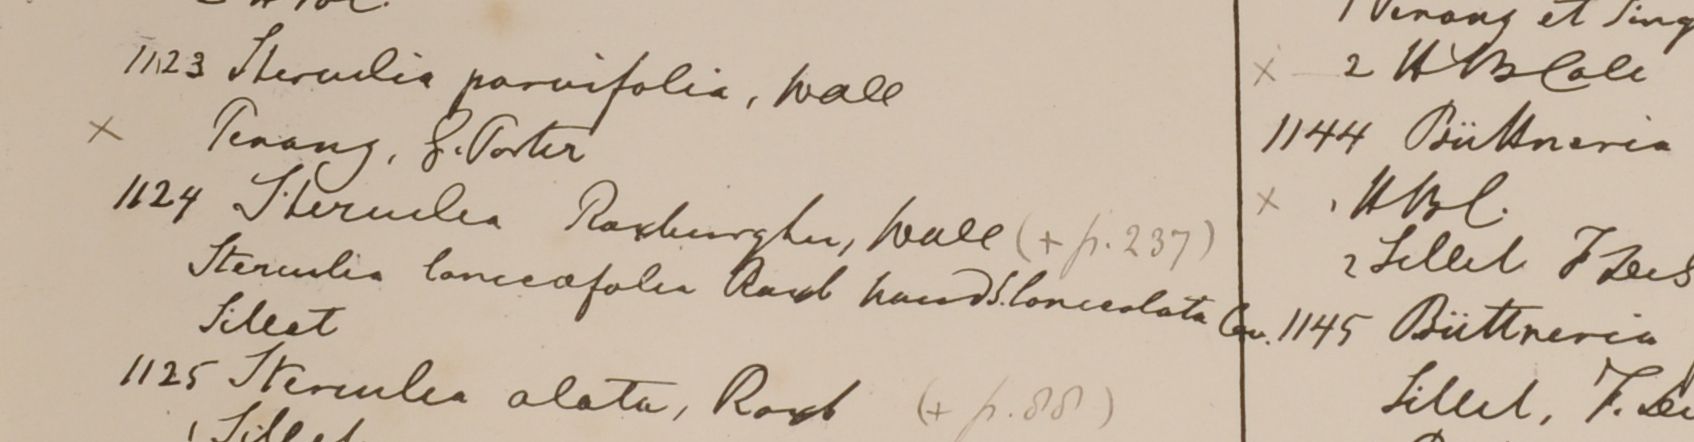 1123 Sterculia parvifolia, Wall
× Penang, G. Porter
1124 Sterculia Roxburghii, Wall (+ p. 237)
Sterculia lanceæfolia Roxb haud S. lanceolata Cav.
Sillet
1125 Sterculia alata, Roxb (+ p. 88)
1 Sillet
1 Penang et Sing
× 2 HB Calc
1144 Büttneria
× 1 HBC.
2 Sillet F De S
1145 Büttneria
Sillet, F. De